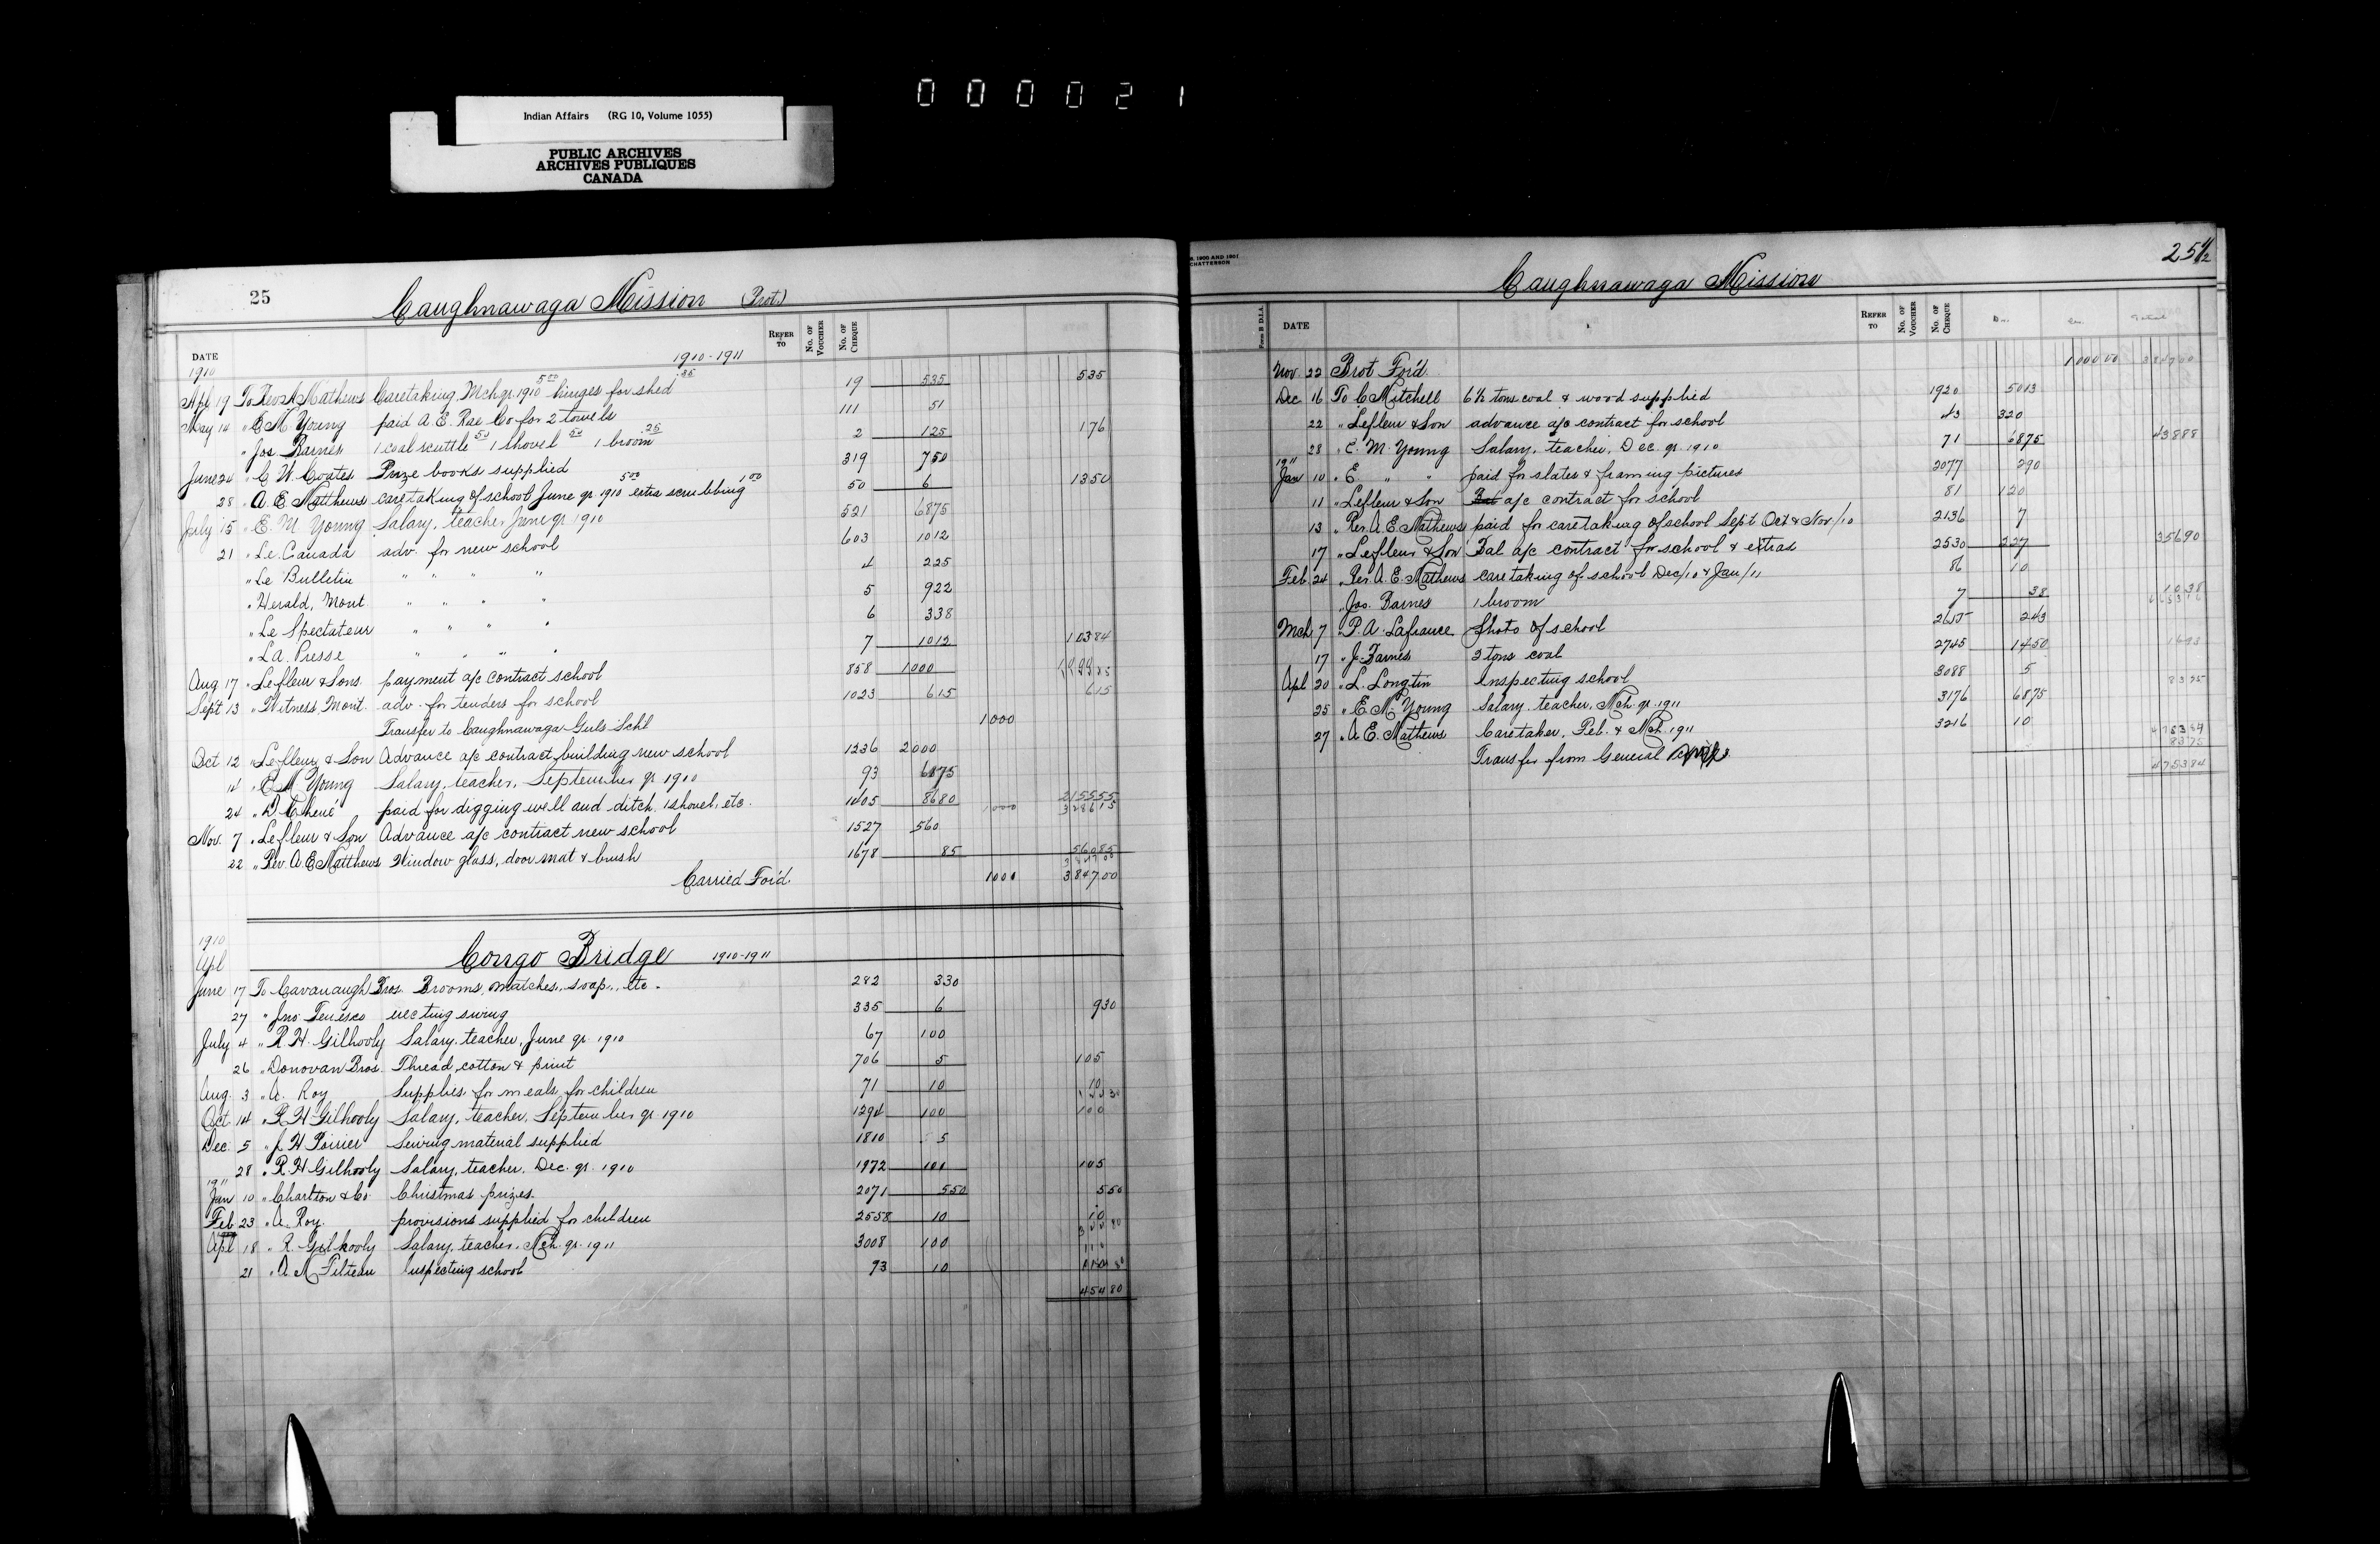 000021
Indian Affairs (RG 10, Volume 1055)
PUBLIC ARCHIVES
ARCHIVES PUBLIQUES
CANADA
25
Caughnawaga Mission (Prot.)
DATE REFER TO No. OF VOUCHER No. OF CHEQUE
1910 1910-1911
Apl 19 To Rev A Mathews Caretaking, Mch qr. 1910 5.00 hinges for shed .35 19 535 535
May 14 " E M Young paid A. E. Rae Co for 2 towels 111 51
" Jos Barnes 1 coal scuttle 50 1 shovel 50 1 broom 25 2 125 176
June 24 " C. W. Coates Prize books supplied 319 750
28 " A. E Matthews caretaking of school June qr 1910 5.00 extra scrubbing 1.00 50 6 1350
July 15 " E. M Young Salary, teacher June qr 1910 521 6875
21 " Le Canada adv. for new school 603 1012
" Le Bulletin " " " " 4 225
" Herald, Mont. " " " " 5 922
" Le Spectateur " " " " 6 338
" La Presse " " " " 7 1012 10384
Aug 17 " Lefleur & Sons payment a/c contract school 858 1000
Sept 13 " Witness, Mont. adv. for tenders for school 1023 615 615
Transfer to Caughnawaga Girls Schl 1000
Oct 12 " Lefleur & Son Advance a/c contract building new school 1236 2000
14 " E M Young Salary, teacher, September qr 1910 93 6875
24 " D. paid for digging well and ditch, 1 shovel, etc. 1405 8680 1000 215555
328615
Nov. 7 " Lefleur & Son Advance a/c contract new school 1527 560
22 " Rev. A E Matthews Window glass, door mat & brush 1678 85 56085
Carried For'd 1000 3,847.00
1910
Apl Congo Bridge 1910-1911
June 17 To Cavanaugh Bros. Brooms, matches, soap, etc. 282 330
27 " Jno. Tenesco erecting swing 335 6 930
July 4 " R. H. Gilhooly Salary, teacher, June qr 1910 67 100
26 " Donovan Bros. Thread, cotton & print 706 5 105
Aug. 3 " A. Roy Supplies for meals for children 71 10 10
Oct. 14 " R H Gilhooly Salary, teacher, September qr 1910 1294 100 100
Dec. 5 " J H Poirier Sewing material supplied 1810 5
28 " R. H Gilhooly Salary, teacher, Dec. qr. 1910 1972 100 105
1911
Jan 10 " Charlton & Co. Christmas prizes 2071 550 550
Feb 23 " A. Roy. provisions supplied for children 2558 10 10
Apl 18 " R. Gilhooly Salary, teacher, Mch. qr. 1911 3008 100
21 " A. M Filteau Inspecting school 73 10 110
45480
25 1/2
Caughnawaga Mission
Form B D.I.A. DATE REFER TO No. OF VOUCHER No. OF CHEQUE
Nov. 22 Brot For'd. 1000.00 384700
Dec 16 To C Mitchell 6½ tons coal & wood supplied 1920 5013
22 " Lefleur & Son advance a/c contract for school 43 320
28 " E. M. Young Salary, teacher, Dec. qr. 1910 71 6875 43888
1911
Jan 10 " E. " " paid for slates & framing pictures 2077 290
11 " Lefleur & Son a/c contract for school 81 120
13 " Rev. A. E. Mathews paid for caretaking of school Sept Oct & Nov/10 2136 7
17 " Lefleur & Son Bal a/c contract for school & extras 2530 227 35690
Feb 24 " Rev. A. E. Mathews caretaking of school Dec/10 & Jan/11 86 10
" Jos. Barnes 1 broom 7 38 1038
Mch 7 " P. A. Lafrance Photo of school 2615 243
17 " J. Barnes 2 tons coal 2745 1450 1693
Apl 20 " L. Longtin Inspecting school 3088 5
25 " E. M. Young Salary, teacher, Mch. qr. 1911 3176 6875 8375
27 " A. E. Mathews Caretaker, Feb. & Mch. 1911 3216 10
Transfer from General
475384